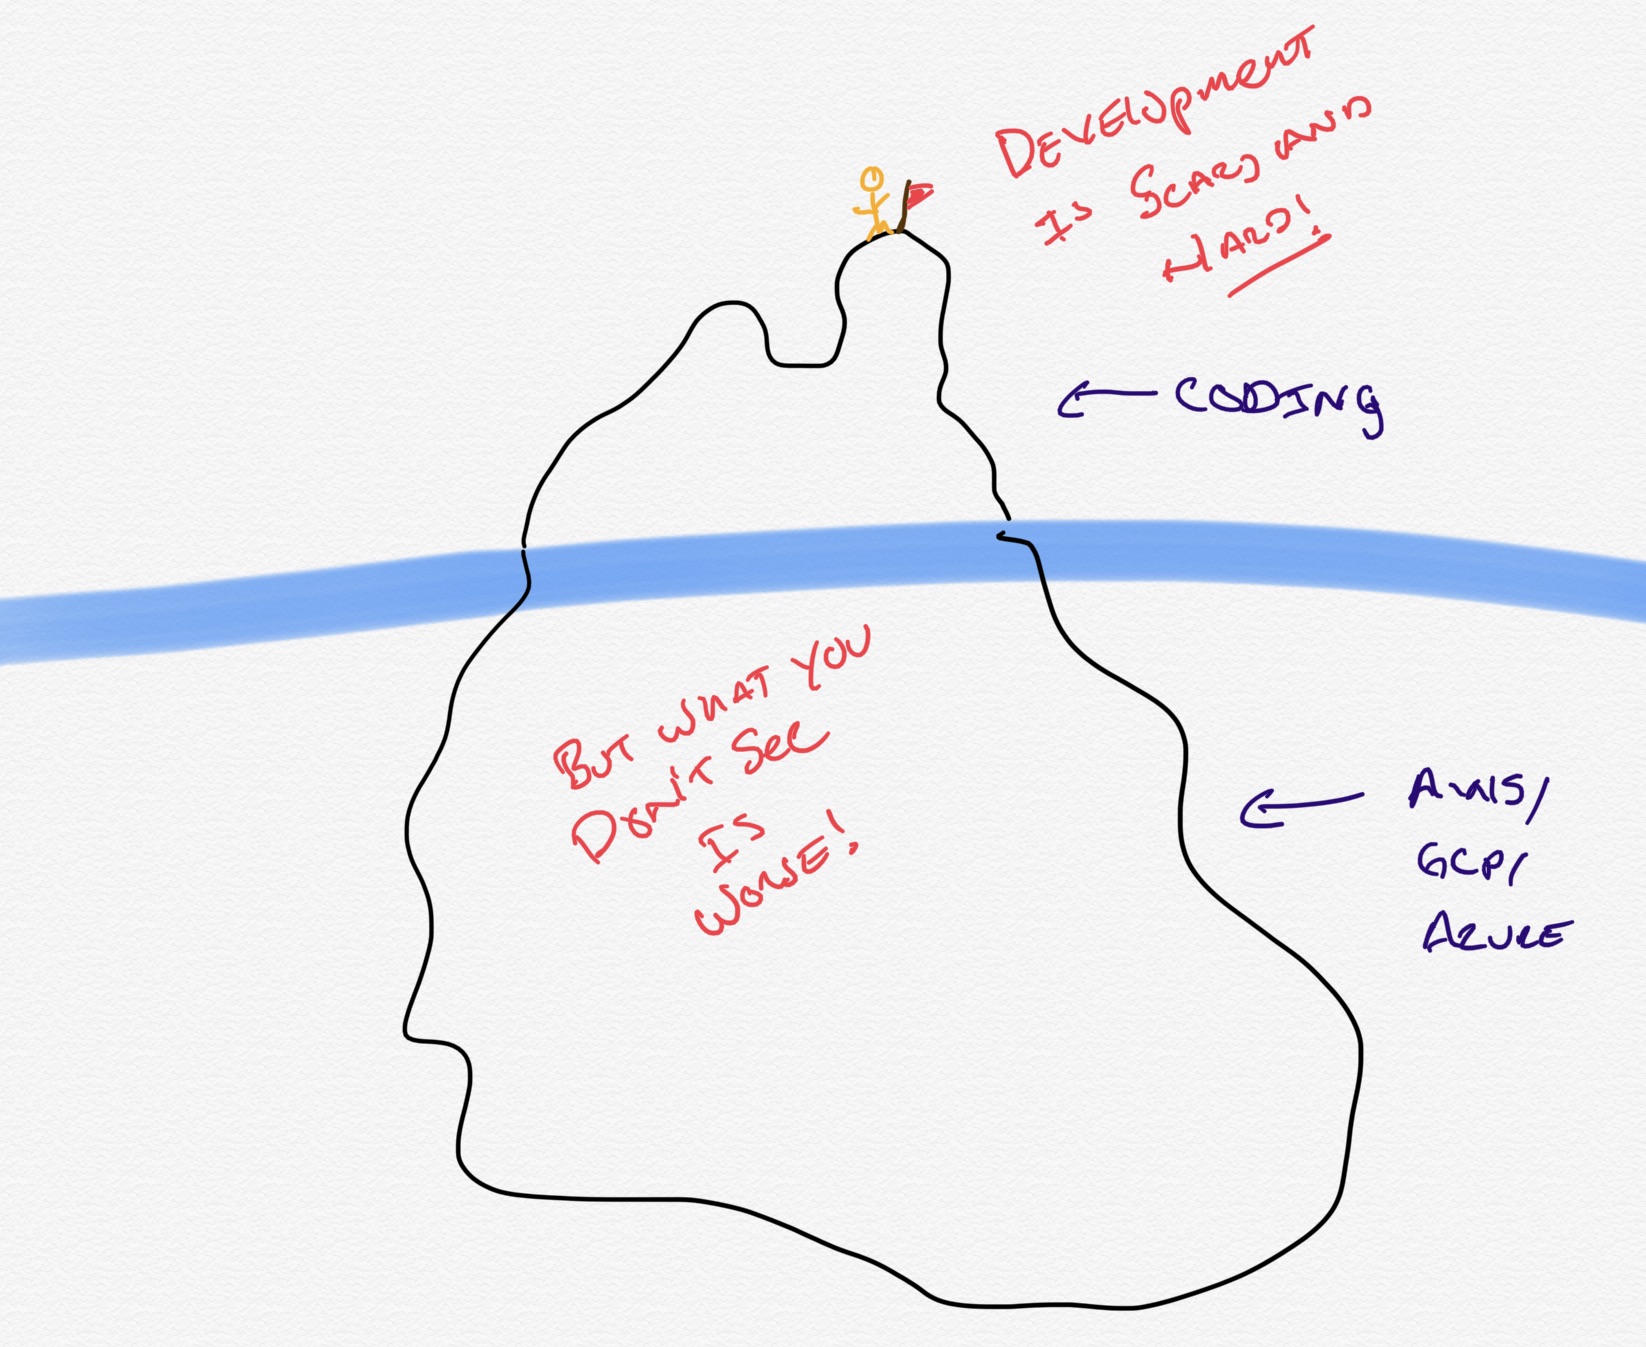 DEVELOPMENT
IS SCARY AND
HARD!
← CODING
BUT WHAT YOU
DON'T SEE
IS
WORSE!
← AWS/
GCP/
AZURE